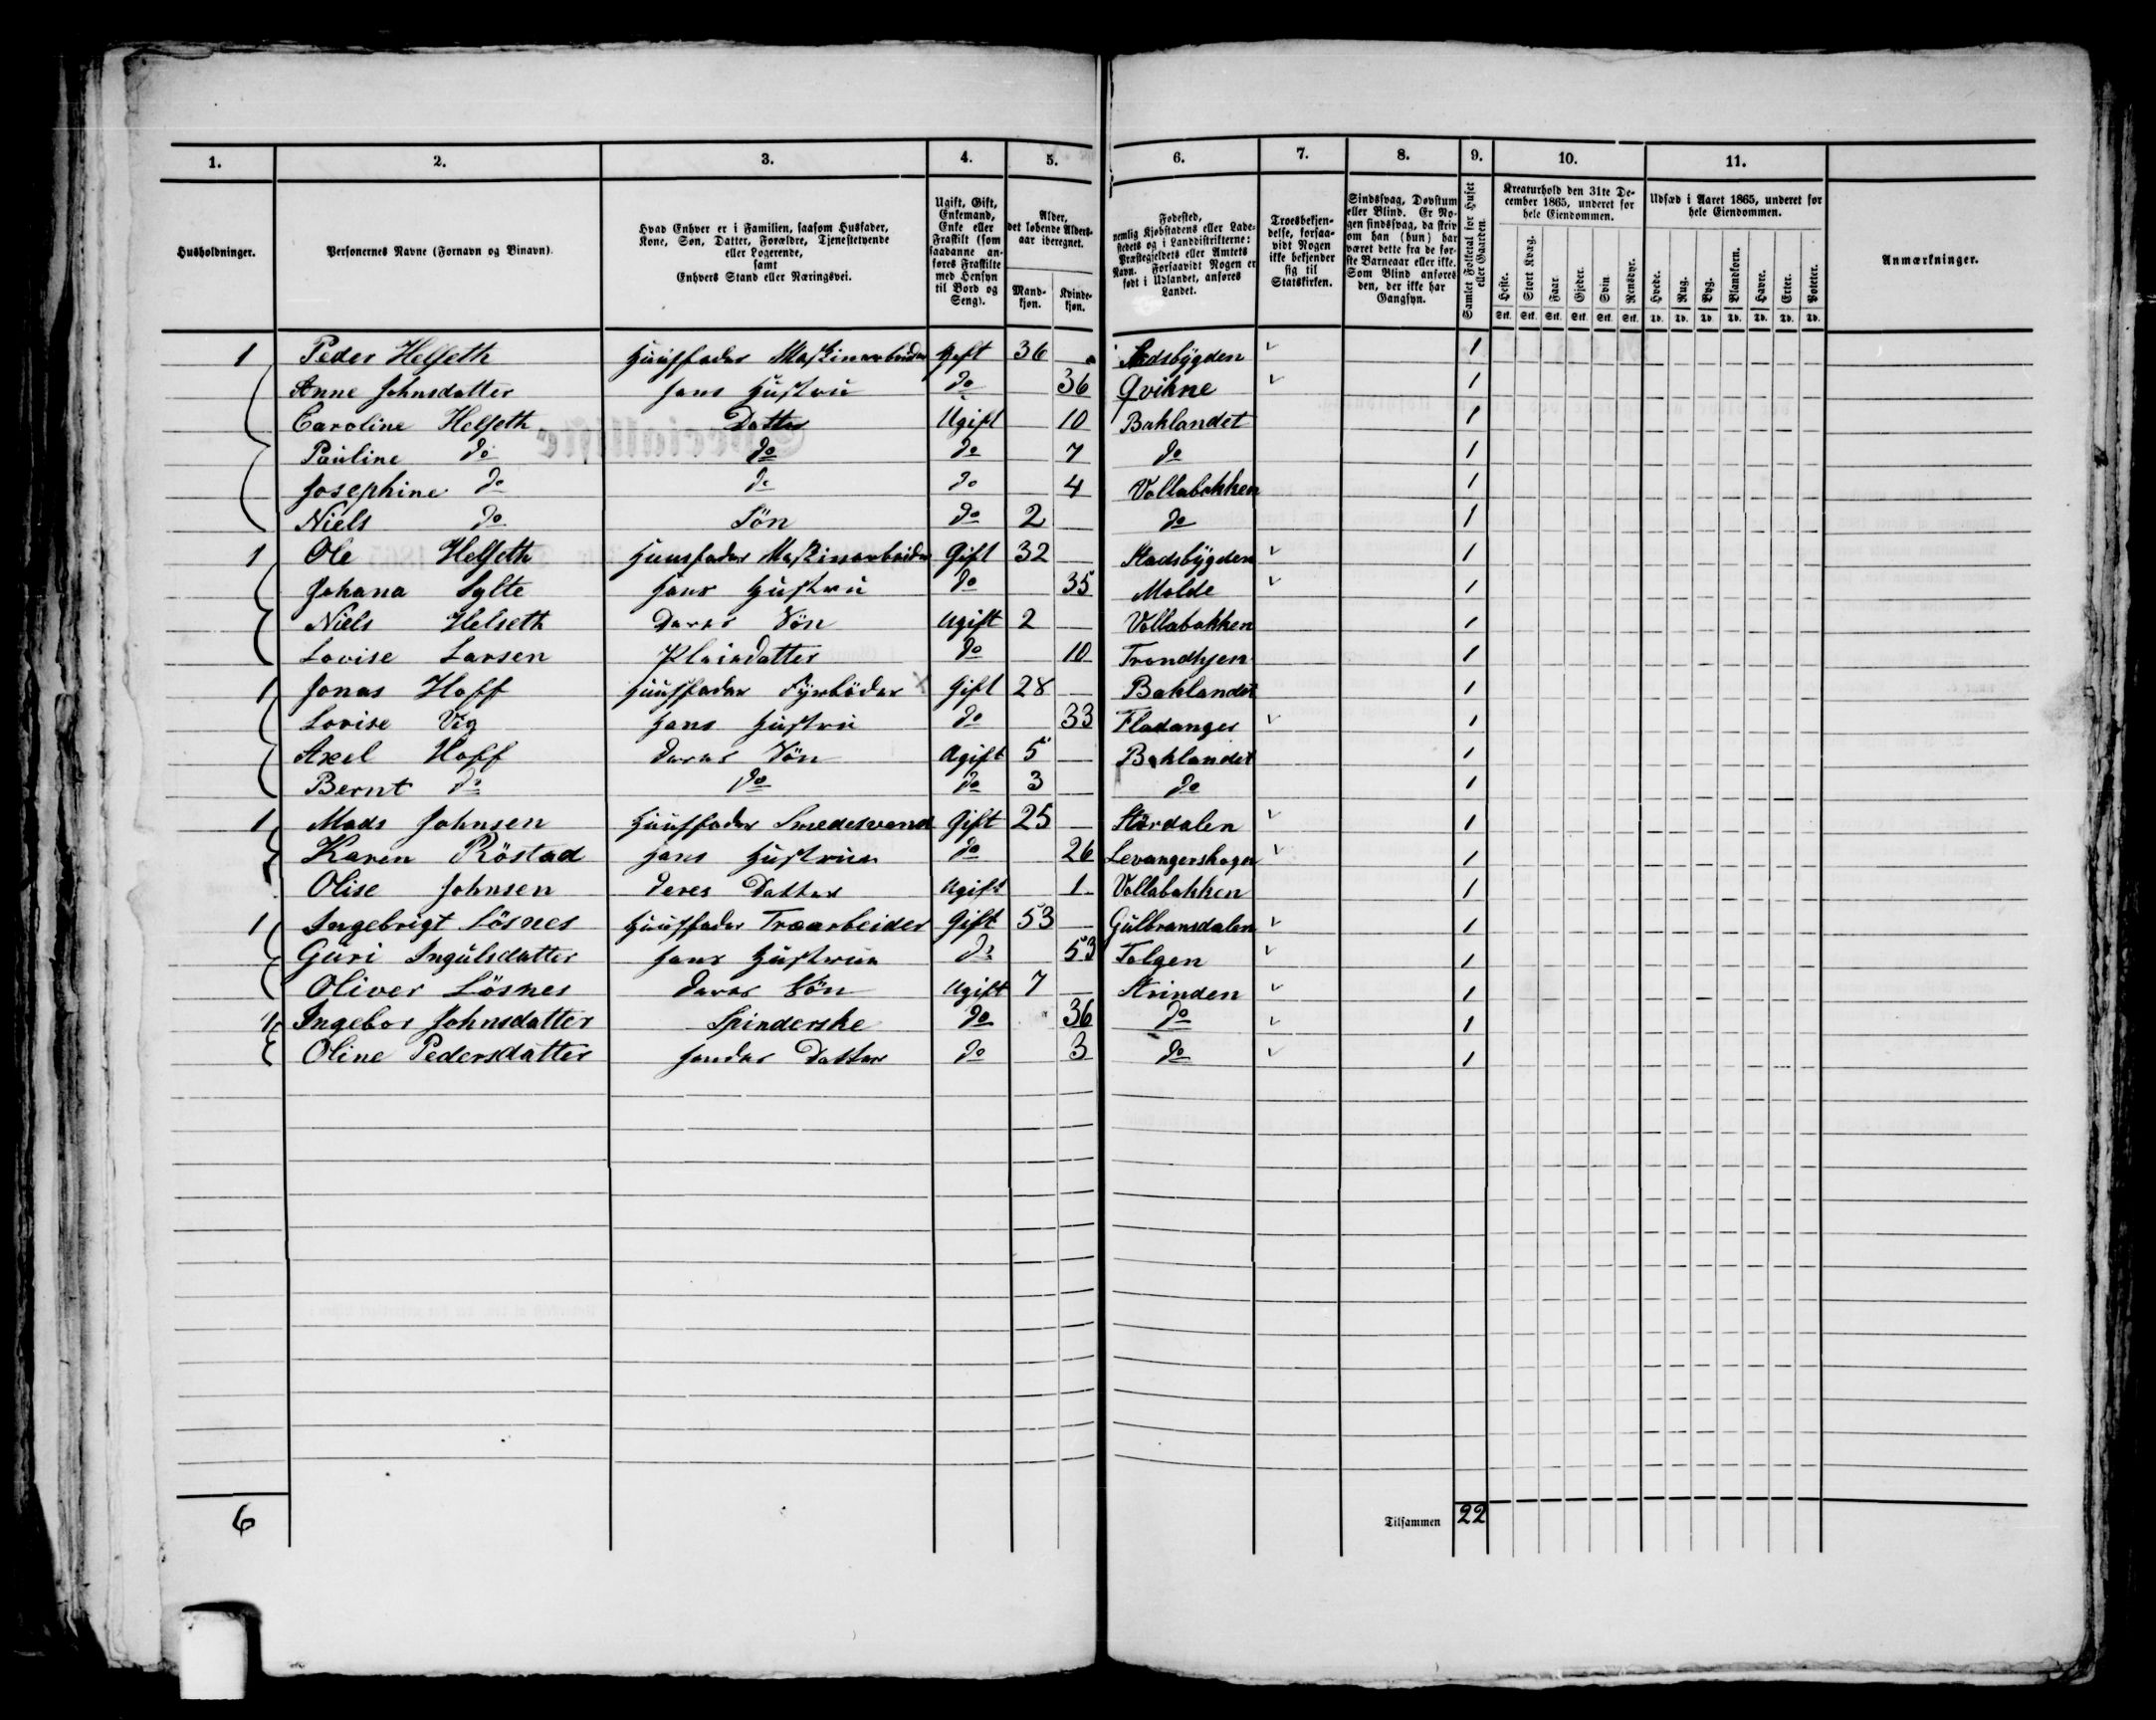 1. 2. 3. 4. 5. 6. 7. 8. 9. 10. 11.
Husholdninger.
Personernes Navne (Fornavn og Binavn).
Hvad Enhver er i Familien, saasom Husfader,
Kone, Søn, Datter, Forældre, Tjenestetyende
eller Logerende,
samt
Enhvers Stand eller Næringsvei.
Ugift, Gift,
Enkemand,
Enke eller
Fraskilt (som
saadanne an-
føres Fraskilte
med Hensyn
til Bord og
Seng).
Alder,
det løbende Alders-
aar iberegnet.
Mand-
kjøn.
Kvinde-
kjøn.
Fødested,
nemlig Kjøbstadens eller Lade-
stedets og i Landdistrikterne:
Præstegjeldets eller Amtets
Navn. Forsaavidt Nogen er
født i Udlandet, anføres
Landet.
Troesbekjen-
delse, forsaa-
vidt Nogen
ikke bekjender
sig til
Statskirken.
Sindssvag, Døvstum
eller Blind. Er No-
gen sindssvag, da skriv
om han (hun) har
været dette fra de før-
ste Barneaar eller ikke.
Som Blind anføres
den, der ikke har
Gangsyn.
Samlet Folketal for Huset
eller Gaarden.
Kreaturhold den 31te De-
cember 1865, underet for
hele Eiendommen.
Heste. Stort Kvæg. Faar. Gjeder. Svin. Rensdyr.
Stk. Stk. Stk. Stk. Stk. Stk.
Udsæd i Aaret 1865, underet for
hele Eiendommen.
Hvede. Rug. Byg. Blandkorn. Havre. Erter. Poteter.
Td. Td. Td. Td. Td. Td. Td.
Anmærkninger.
1 Peder Helseth Huusfader Maskinarbeider Gift 36 Stadsbygden 1
Anne Johnsdatter hans Hustru do 36 Qvikne 1
Caroline Helseth Datter Ugift 10 Baklandet 1
Pauline do do do 7 do 1
Josephine do do do 4 Vollabakken 1
Niels do Søn do 2 do 1
1 Ole Helseth Huusfader Maskinarbeider Gift 32 Stadsbygden 1
Johana Sylte hans Hustru do 35 Molde 1
Niels Helseth Deres Søn Ugift 2 Vollabakken 1
Lovise Larsen Pleiedatter do 10 Trondhjen 1
1 Jonas Hoff Huusfader Fyrbøder Gift 28 Baklandet 1
Lovise Vig Hans Hustru do 33 Fladanger 1
Axel Hoff deres Søn Ugift 5 Baklandet 1
Bernt do do do 3 do 1
1 Mads Johnsen Huusfader Smedesvend Gift 25 Størdalen 1
Karen Röstad Hans Hustrue do 26 Levangerskogn 1
Olise Johnsen deres Datter Ugift 1 Vollabakken 1
1 Ingebrigt Lösnes Huusfader Træarbeider Gift 53 Gulbransdalen 1
Guri Ingulsdatter hans Hustrue do 53 Tolgen 1
Oliver Lösnes deres Søn Ugift 7 Strinden 1
1 Ingebor Johnsdatter Spinderske do 36 do 1
Oline Pedersdatter hendes Datter do 3 do 1
6 Tilsammen 22